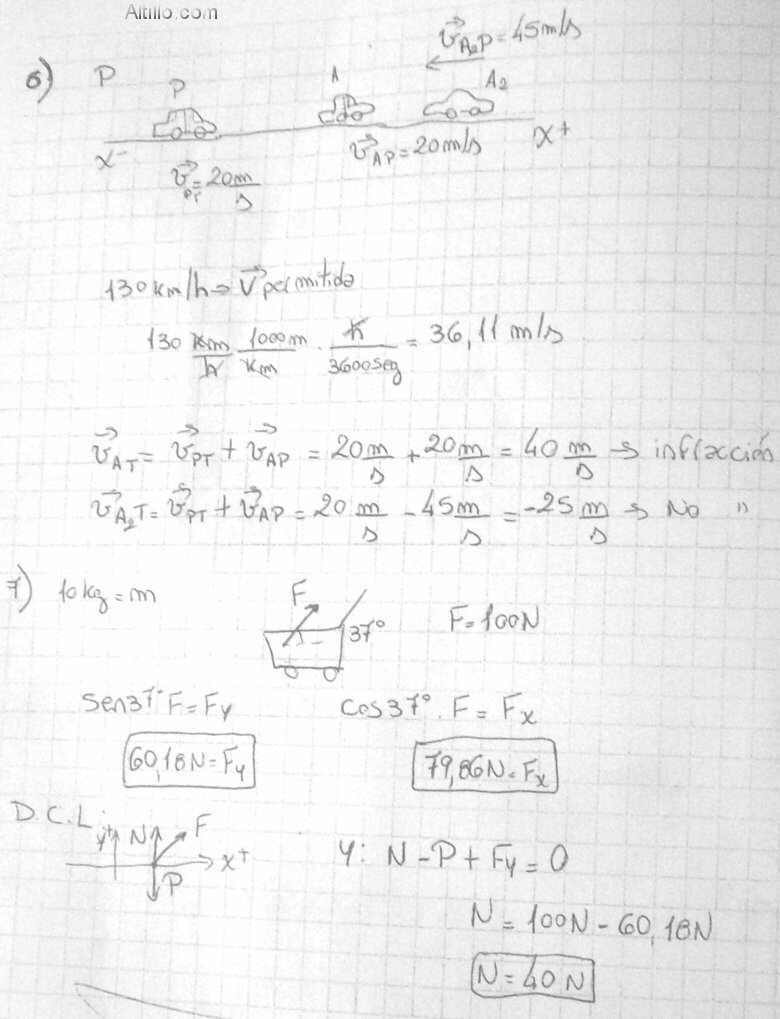 Altillo.com
6) P
v⃗A₂P = 45m/s
P A A₂
X⁻ X⁺
v⃗PT = 20 m/s v⃗AP = 20m/s
130 km/h → V⃗ permitida
130 Km/h · 1000m/Km · h/3600seg = 36,11 m/s
v⃗AT = v⃗PT + v⃗AP = 20 m/s + 20 m/s = 40 m/s → infracción
v⃗A₂T = v⃗PT + v⃗AP = 20 m/s - 45 m/s = -25 m/s → No "
7) 10kg = m F 37° F = 100N
Sen37° F = Fy cos37° . F = Fx
60,18N = Fy 79,86N = Fx
D.C.L. y⁺ N F X⁺ P
Y: N - P + Fy = 0
N = 100N - 60,18N
N = 40 N